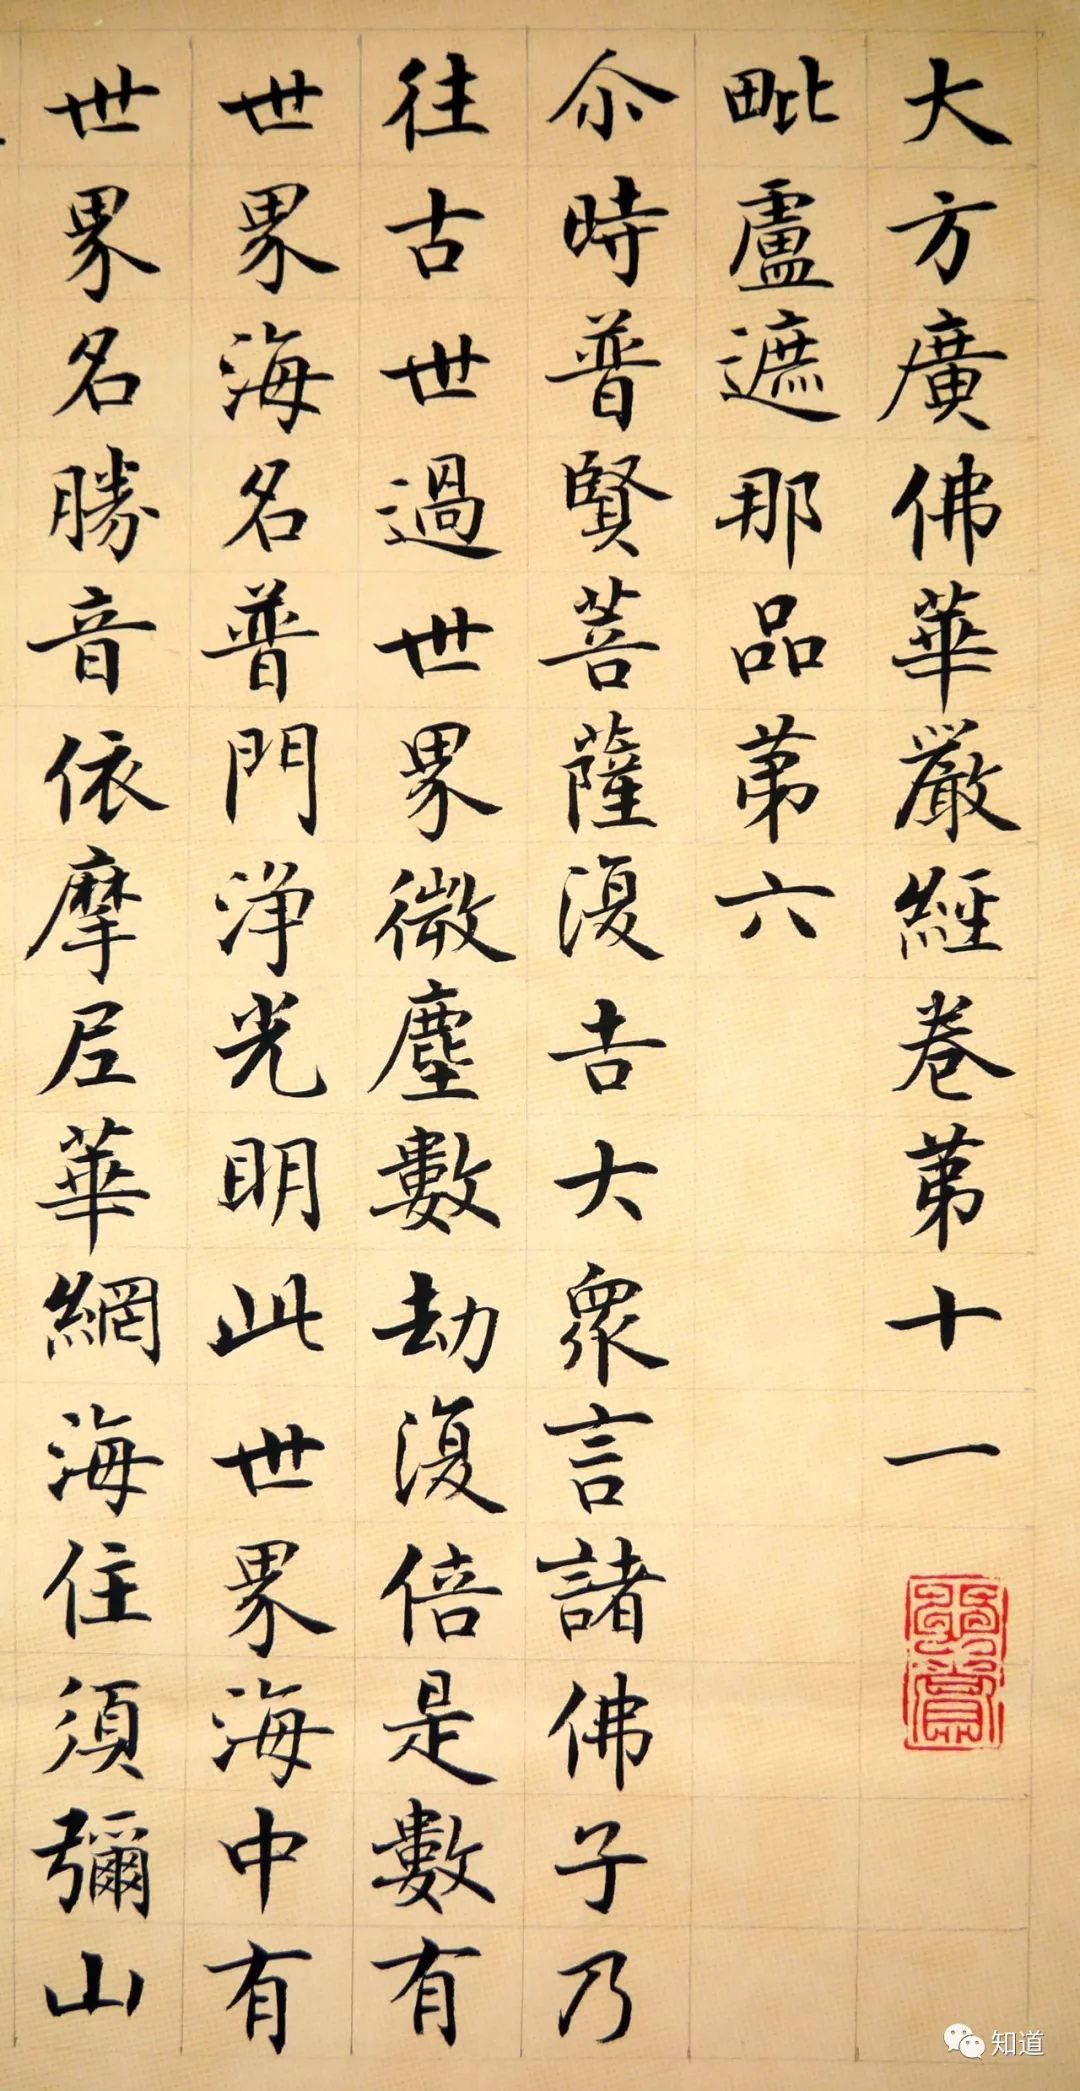 大方廣佛華嚴經卷第十一
毗盧遮那品第六
尒時普賢菩薩復告大衆言諸佛子乃
往古世過世界微塵數劫復倍是數有
世界海名普門淨光明此世界海中有
世界名勝音依摩尼華網海住須彌山
知道